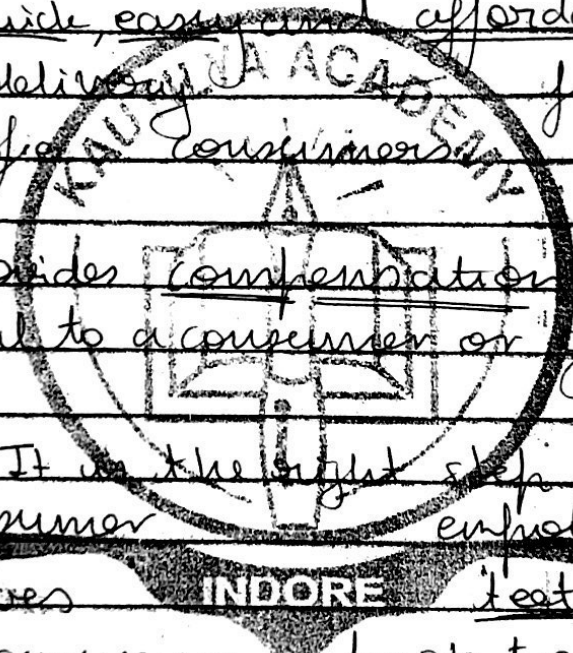 easy and afforda
delivery f
for consumers
KAUTILYA ACADEMY
vides compensation
to a consumer or
It is the right step
sumer empo
INDORE